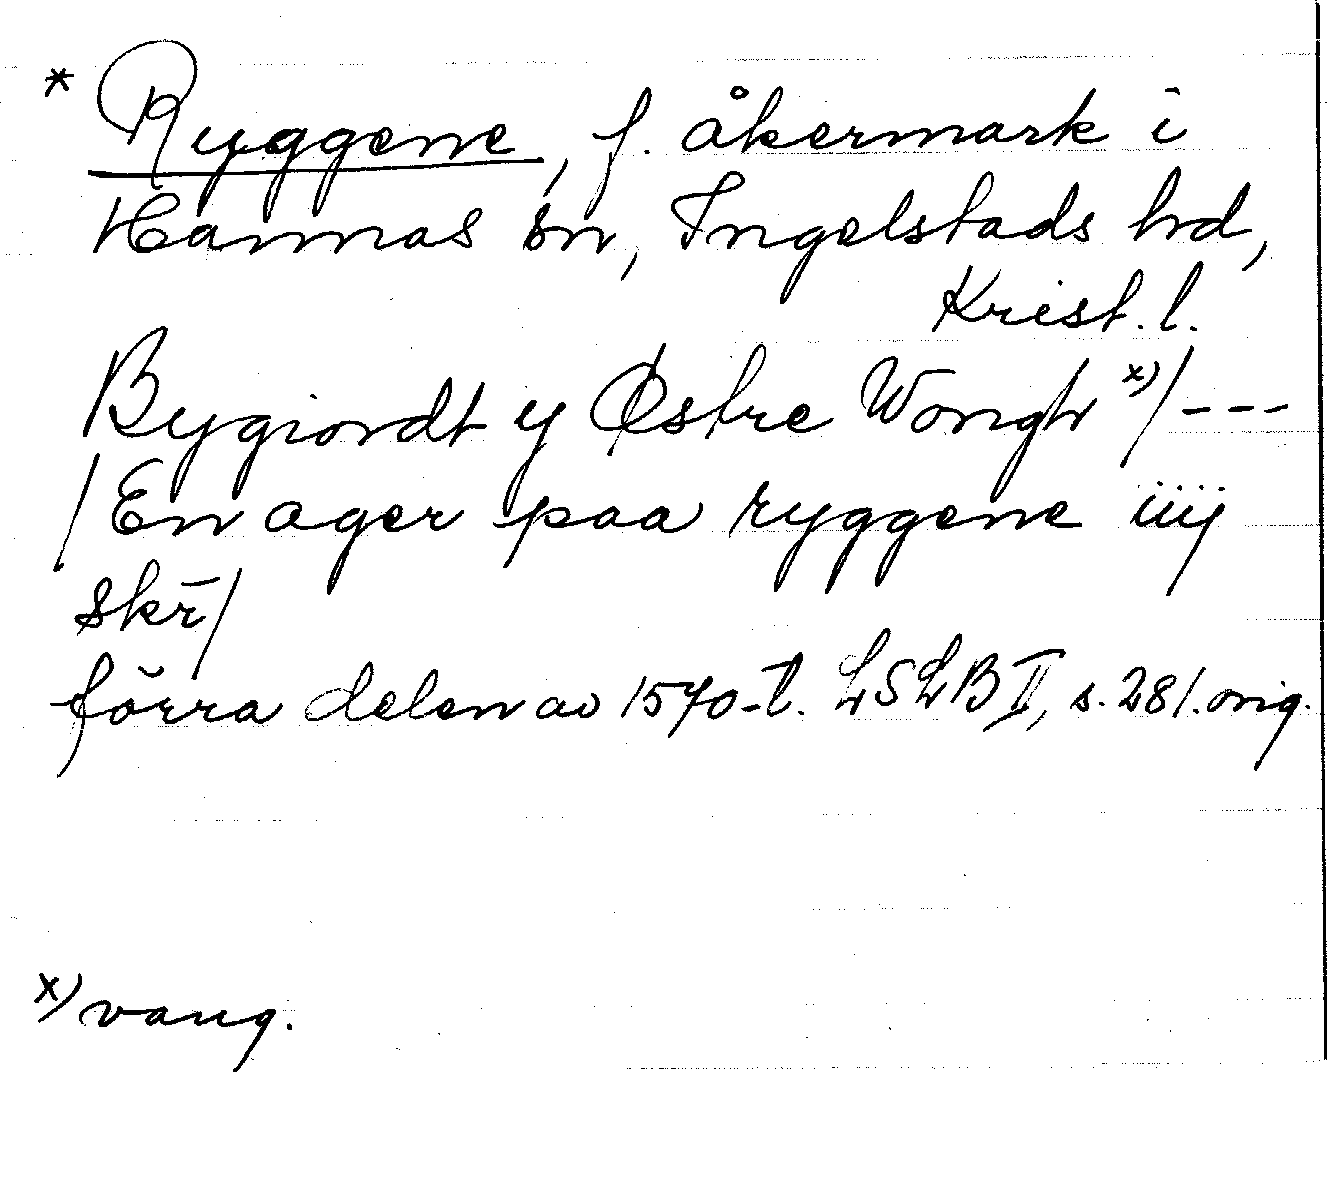 * Ryggene, f. åkermark i
Hannas sn, Ingelstads hd,
Krist. l.
Bygiordt y Østre Wongh x)/---
/En ager paa ryggene iiij
skr̄/
förra delen av 1570-t. LSLB II, s. 281. orig.
x) vang.